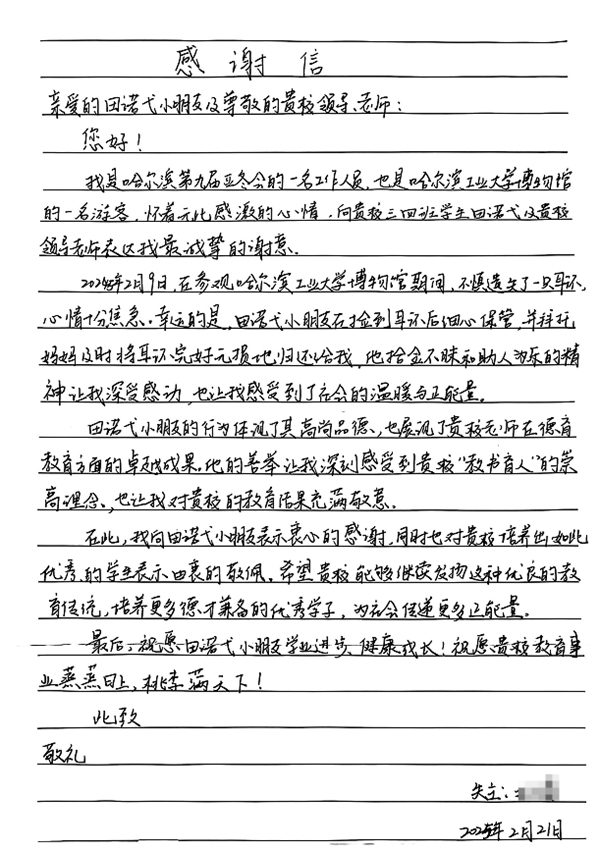 感谢信
亲爱的田诺弋小朋友及尊敬的贵校领导、老师：
您好！
我是哈尔滨第九届亚冬会的一名工作人员，也是哈尔滨工业大学博物馆
的一名游客，怀着无比感激的心情，向贵校三四班学生田诺弋及贵校
领导老师表达我最诚挚的谢意。
2025年2月9日，在参观哈尔滨工业大学博物馆期间，不慎遗失了一只耳环，
心情十分焦急。幸运的是，田诺弋小朋友在捡到耳环后细心保管，并拜托
妈妈及时将耳环完好无损地归还给我，他拾金不昧和助人为乐的精
神让我深受感动，也让我感受到了社会的温暖与正能量。
田诺弋小朋友的行为体现了其高尚品德，也展现了贵校老师在德育
教育方面的卓越成果。他的善举让我深刻感受到贵校“教书育人”的崇
高理念，也让我对贵校的教育结果充满敬意。
在此，我向田诺弋小朋友表示衷心的感谢，同时也对贵校培养出如此
优秀的学生表示由衷的敬佩。希望贵校能够继续发扬这种优良的教
育传统，培养更多德才兼备的优秀学子，为社会传递更多正能量。
最后，祝愿田诺弋小朋友学业进步，健康成长！祝愿贵校教育事
业蒸蒸日上，桃李满天下！
此致
敬礼
失主：
2025年2月21日